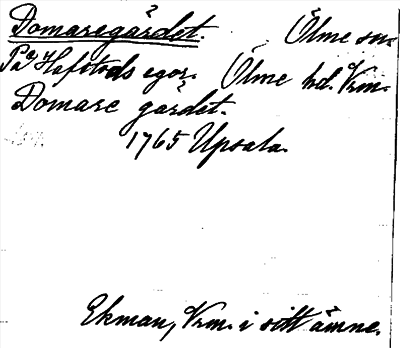 Domaregärdet. Ölme sn.
På Hafstads egor. Ölme hd. Vrm.
Domare gärdet.
1765 Upsala.
Ekman, Vrm. i sitt ämne.